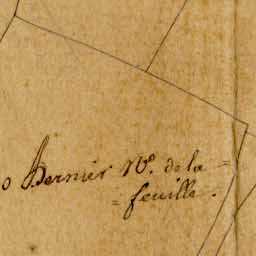 Dernier N°. de la =
= feuille.